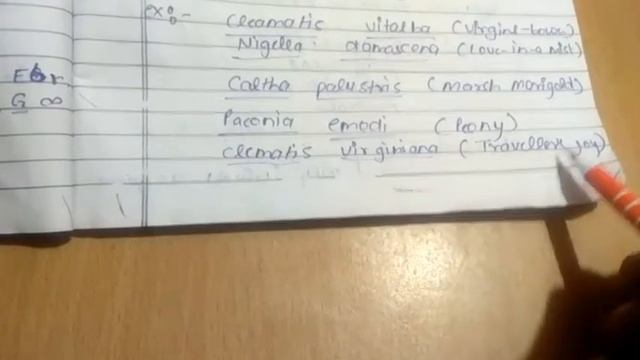 ex:- Clecmatic vitalba (Virgins-bower)
Nigella damascena (Love-in-a mist)
Caltha palustris (marsh marigold)
Paeonia emodi (Peony)
Clematis virginiana (Travellers joy)
G ∞